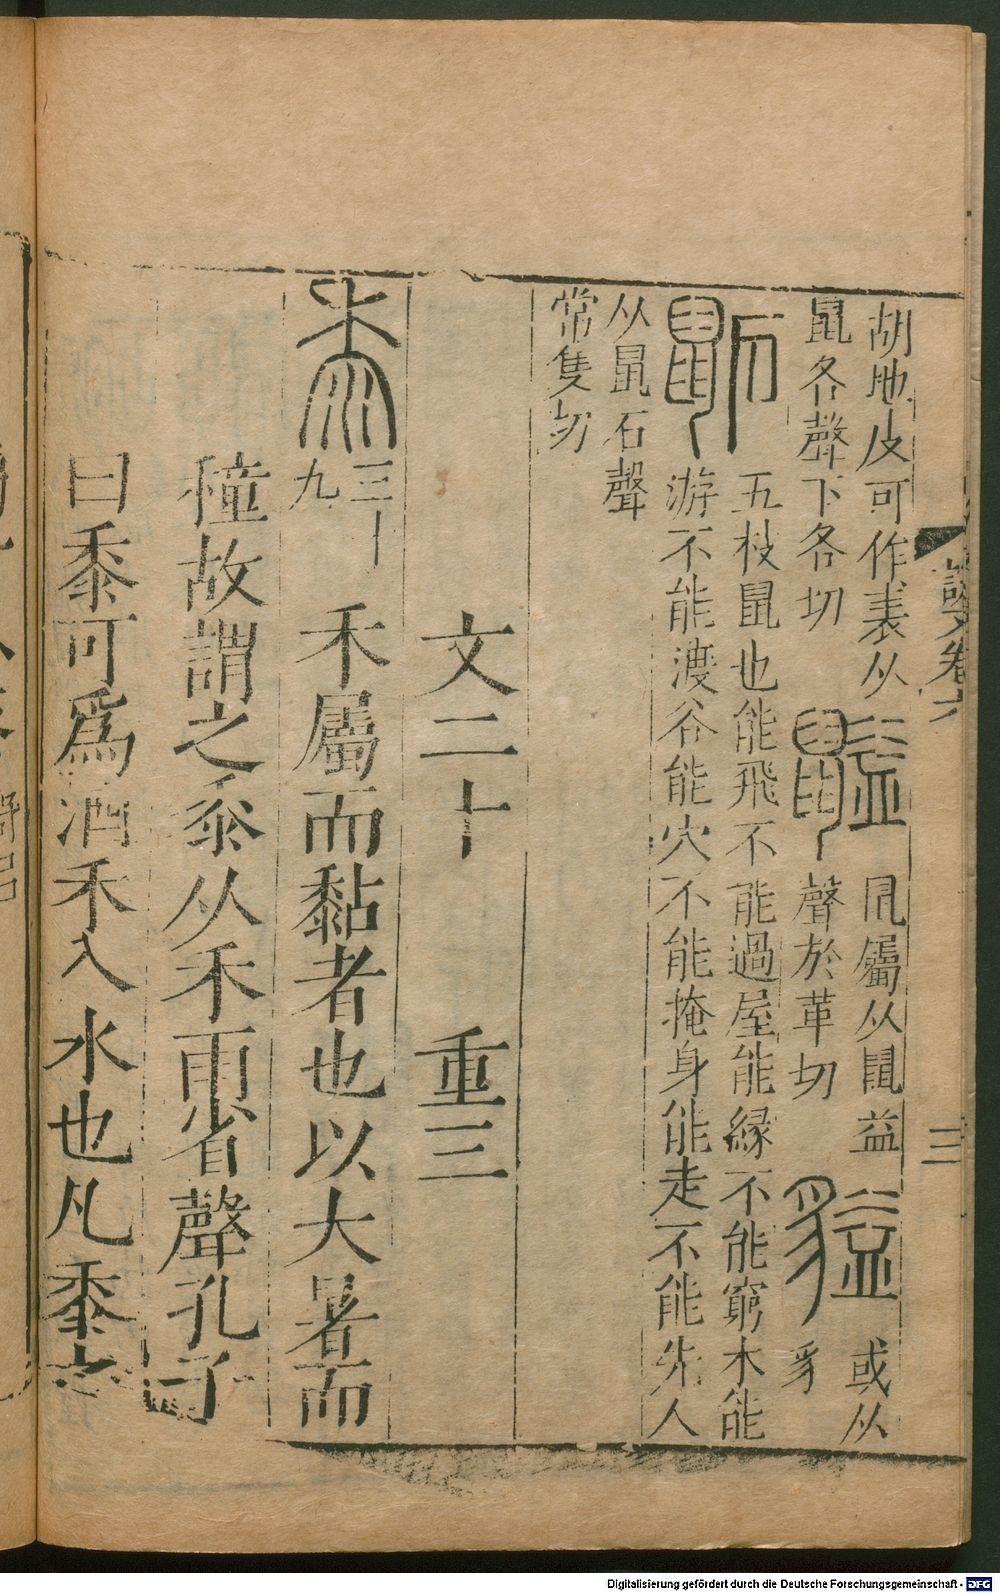 胡地皮可作裘从
鼠各聲下各切
𪕻鼠屬从鼠益
聲於革切
貖或从
豸
䶂五枝鼠也能飛不能過屋能緣不能窮木能
游不能渡谷能穴不能掩身能走不能先人
从鼠石聲
常隻切
文二十　重三
黍
三十
九
禾屬而黏者也以大暑而
穜故謂之黍从禾雨省聲孔子
曰黍可爲酒禾入水也凡黍之
說文卷六
三
Digitalisierung gefördert durch die Deutsche Forschungsgemeinschaft - DFG